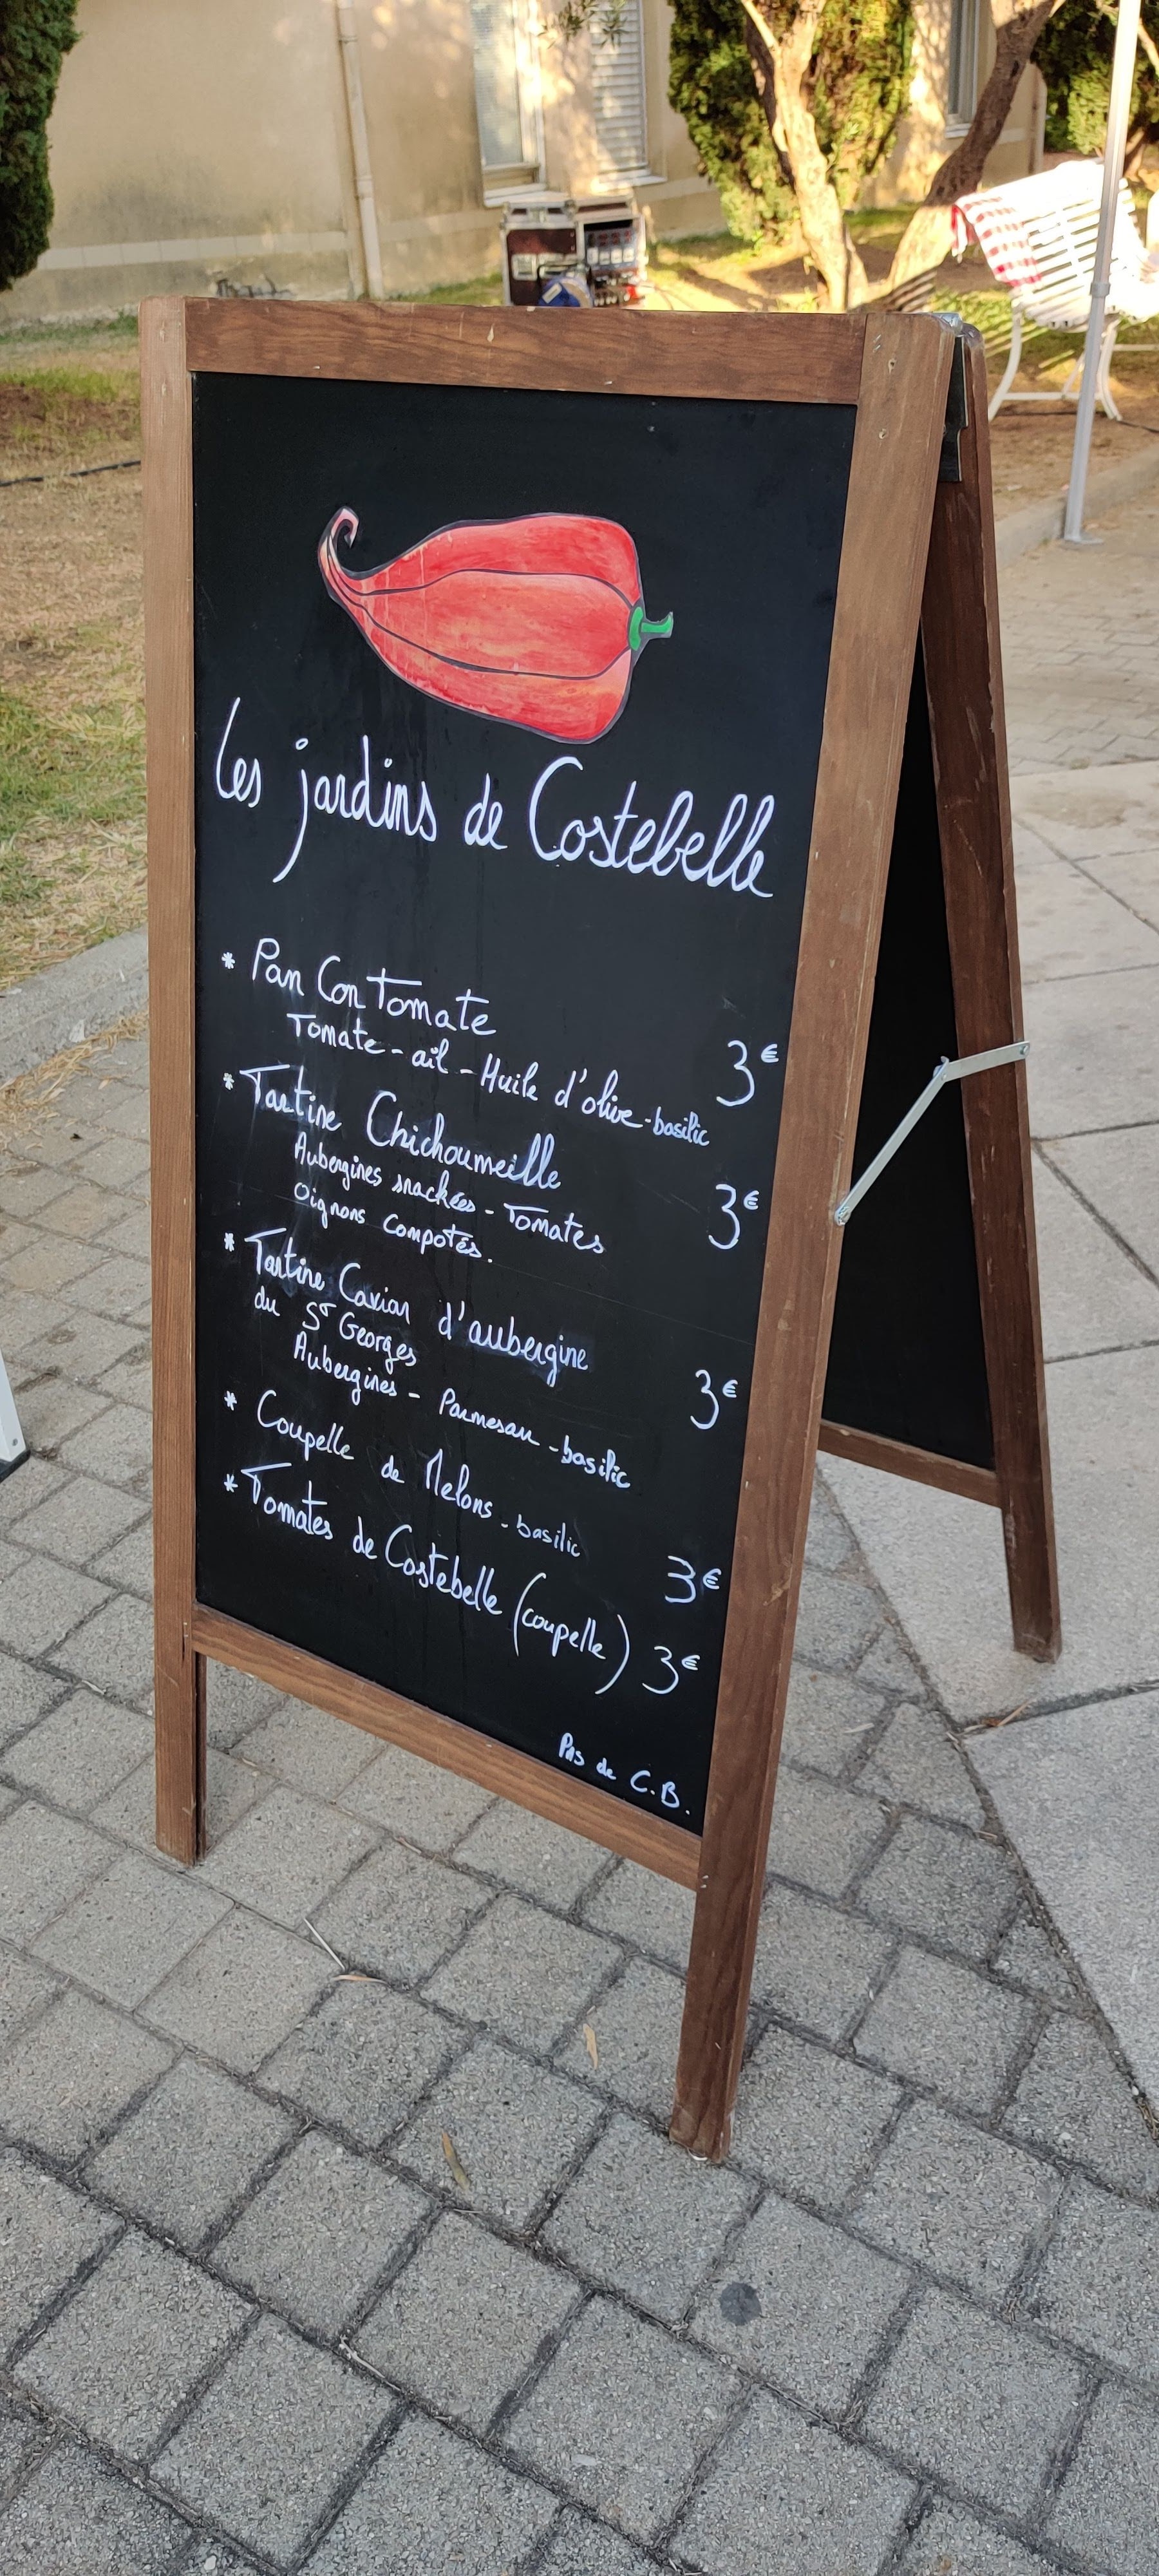 Les jardins de Costebelle
* Pan Con Tomate
Tomate - ail - Huile d'olive - basilic 3€
* Tartine Chichoumeille
Aubergines snackées - Tomates 3€
Oignons compotés.
* Tartine Caviar d'aubergine
du St Georges
Aubergines - Parmesan - basilic 3€
* Coupelle de Melons - basilic 3€
* Tomates de Costebelle (coupelle) 3€
Pas de C.B.